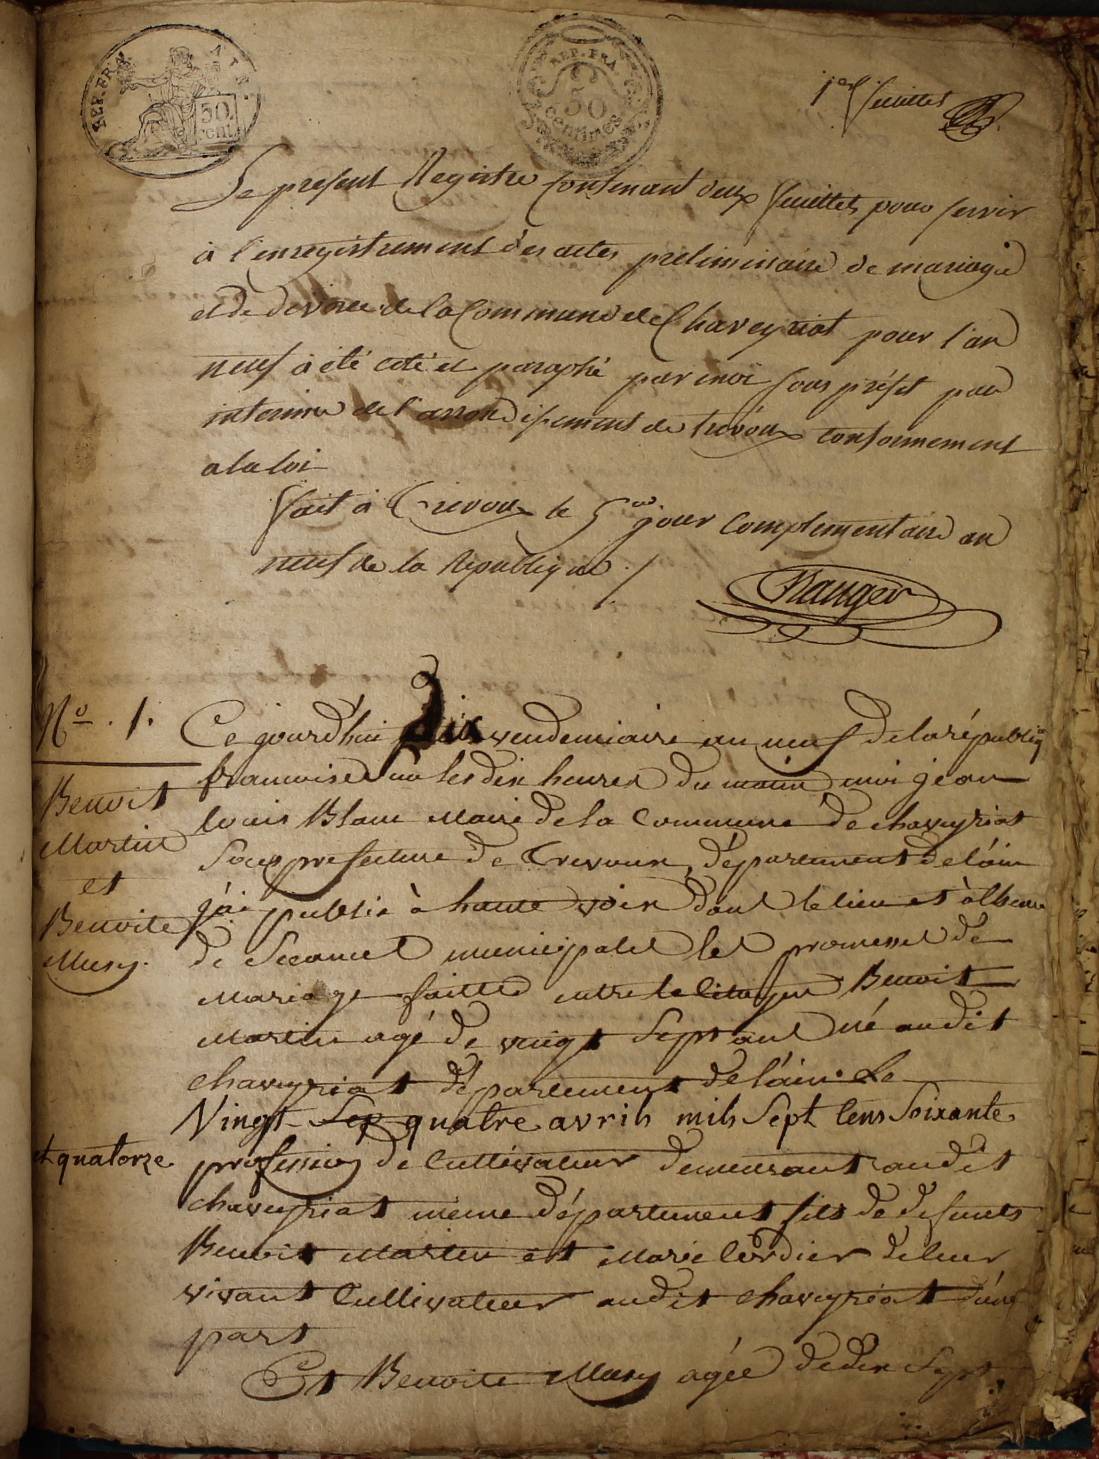 REP. FRA
50
cent.
REP. FRA
50
centimes
1er feuillet
Le present Registre Contenant deux feuillets pour servir
à l'enregistrement des actes preliminaire de mariage
et de divorce de la Commune de Chaveyriat pour l'an
neuf à été coté et paraphé par moi sous préfet par
interime de l'arrondissement de trévoux conformement
a la loi
fait à Trevoux le 5e jour Complementaire an
neuf de la Republique ./
No. 1.
Benoit
Martin
et
Benoite
Musy.
Ce jourd'hui dix vendemiaire an neuf de la républiq
francaise sur les dix heures du matin moi jean
louis Blanc Maire de la Commune de chaveyriat
Sous prefecture de Trevoux, département de l'ain
j'ai publié à haute voix dans le lieu et à l'heure
de Seances municipales les promesses de
Mariage faitte entre le Citoyen Benoit
Martin agé de vingt Sept ans né audit
chaveyriat département de l'ain. Le
Vingt Sep quatre avrils mils Sept Cens Soixante
et quatorze
profession de Cultivateur demeurant audit
chaveyriat meme département fils de defunts
Benoit Martin et Marie Cordier de leur
vivant Cultivateur audit chaveyriat d'une
part
Et Benoite Musy agée de dix Sept